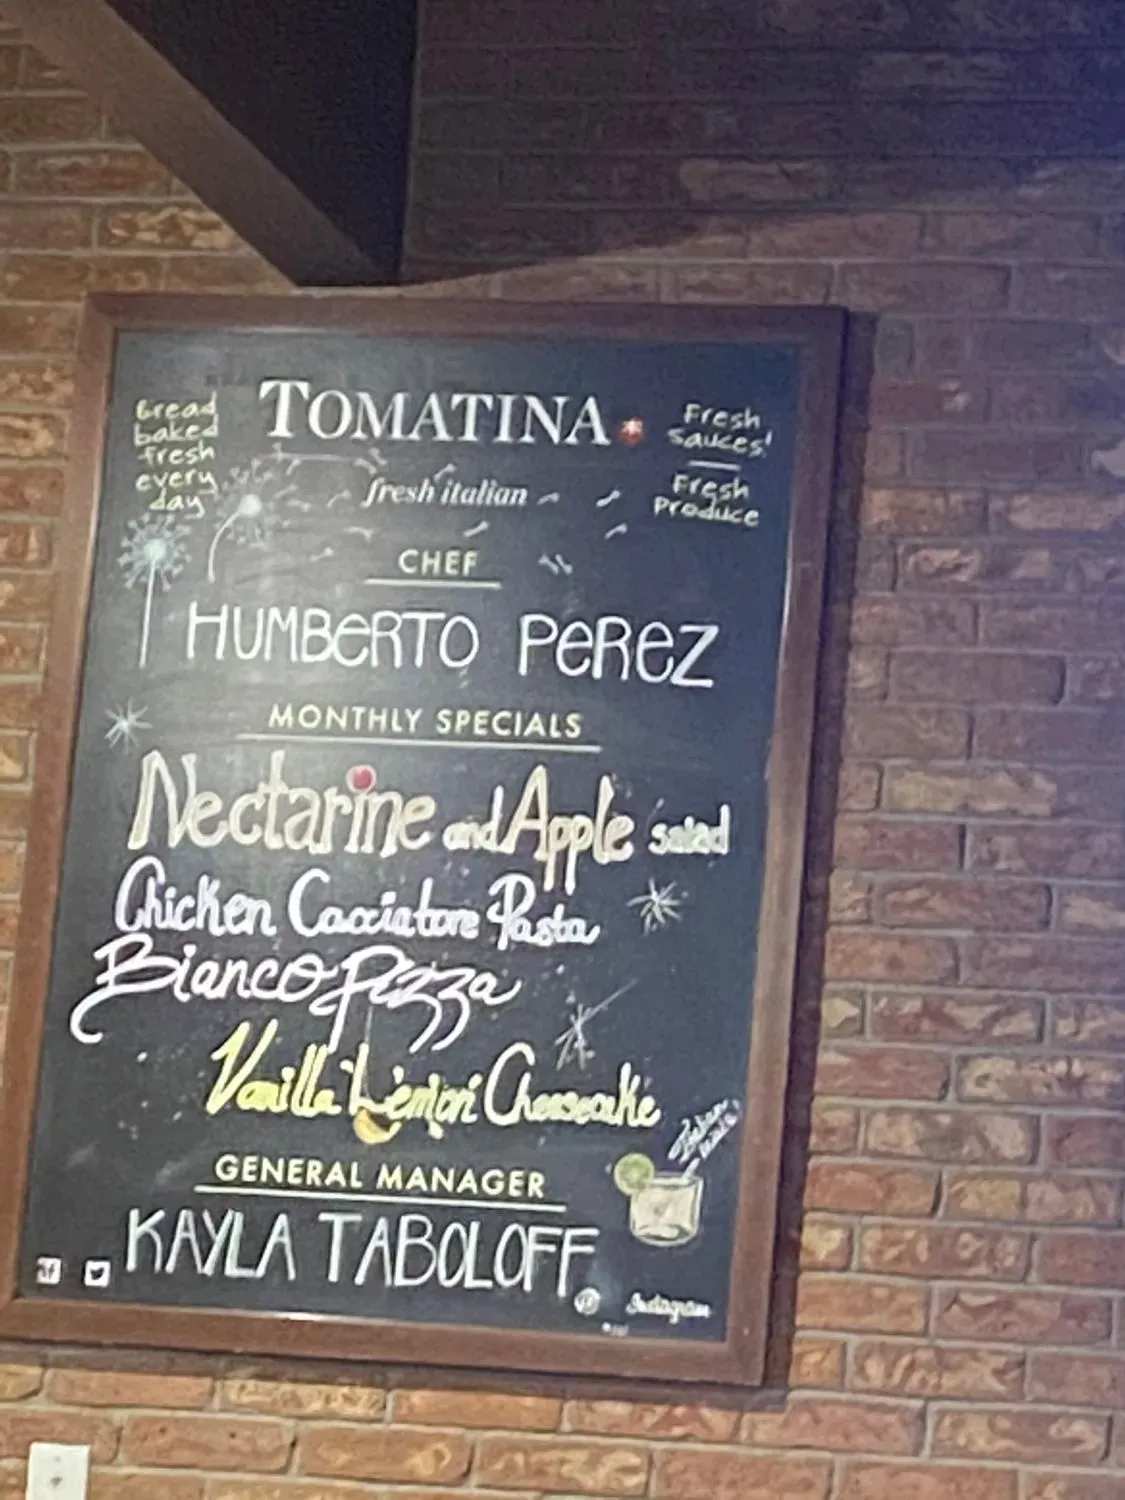 TOMATINA
bread
baked
fresh
every
day
Fresh
sauces!
Fresh
Produce
fresh italian
CHEF
HUMBERTO PEREZ
MONTHLY SPECIALS
Nectarine and Apple salad
Chicken Cacciatore Pasta
Bianco Pizza
Vanilla Lemon Cheesecake
GENERAL MANAGER
KAYLA TABOLOFF
Instagram